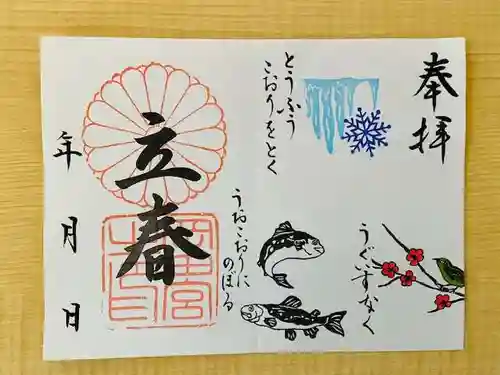 奉拝
とうふう
こおりをとく
うぐいすなく
うおこおりに
のぼる
立春
年
月
日